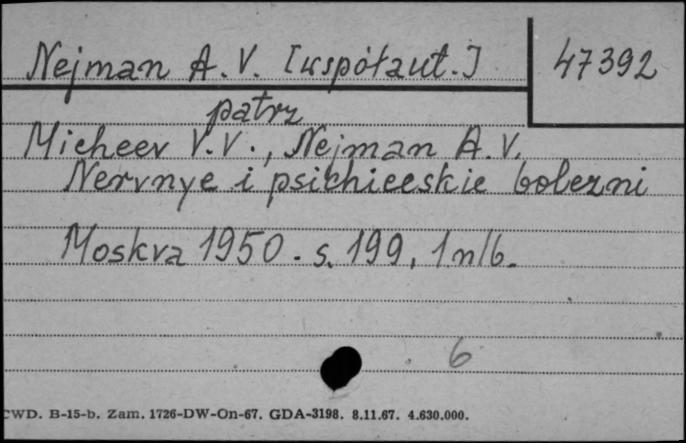 Nejman A.V. [współaut.]
47392
patrz
Micheev V.V., Nejman A.V.
Nervnye i psichiceskie bolezni
Moskva 1950. s. 199, 1 nlb.
6
CWD. B-15-b. Zam. 1726-DW-On-67. GDA-3198. 8.11.67. 4.630.000.